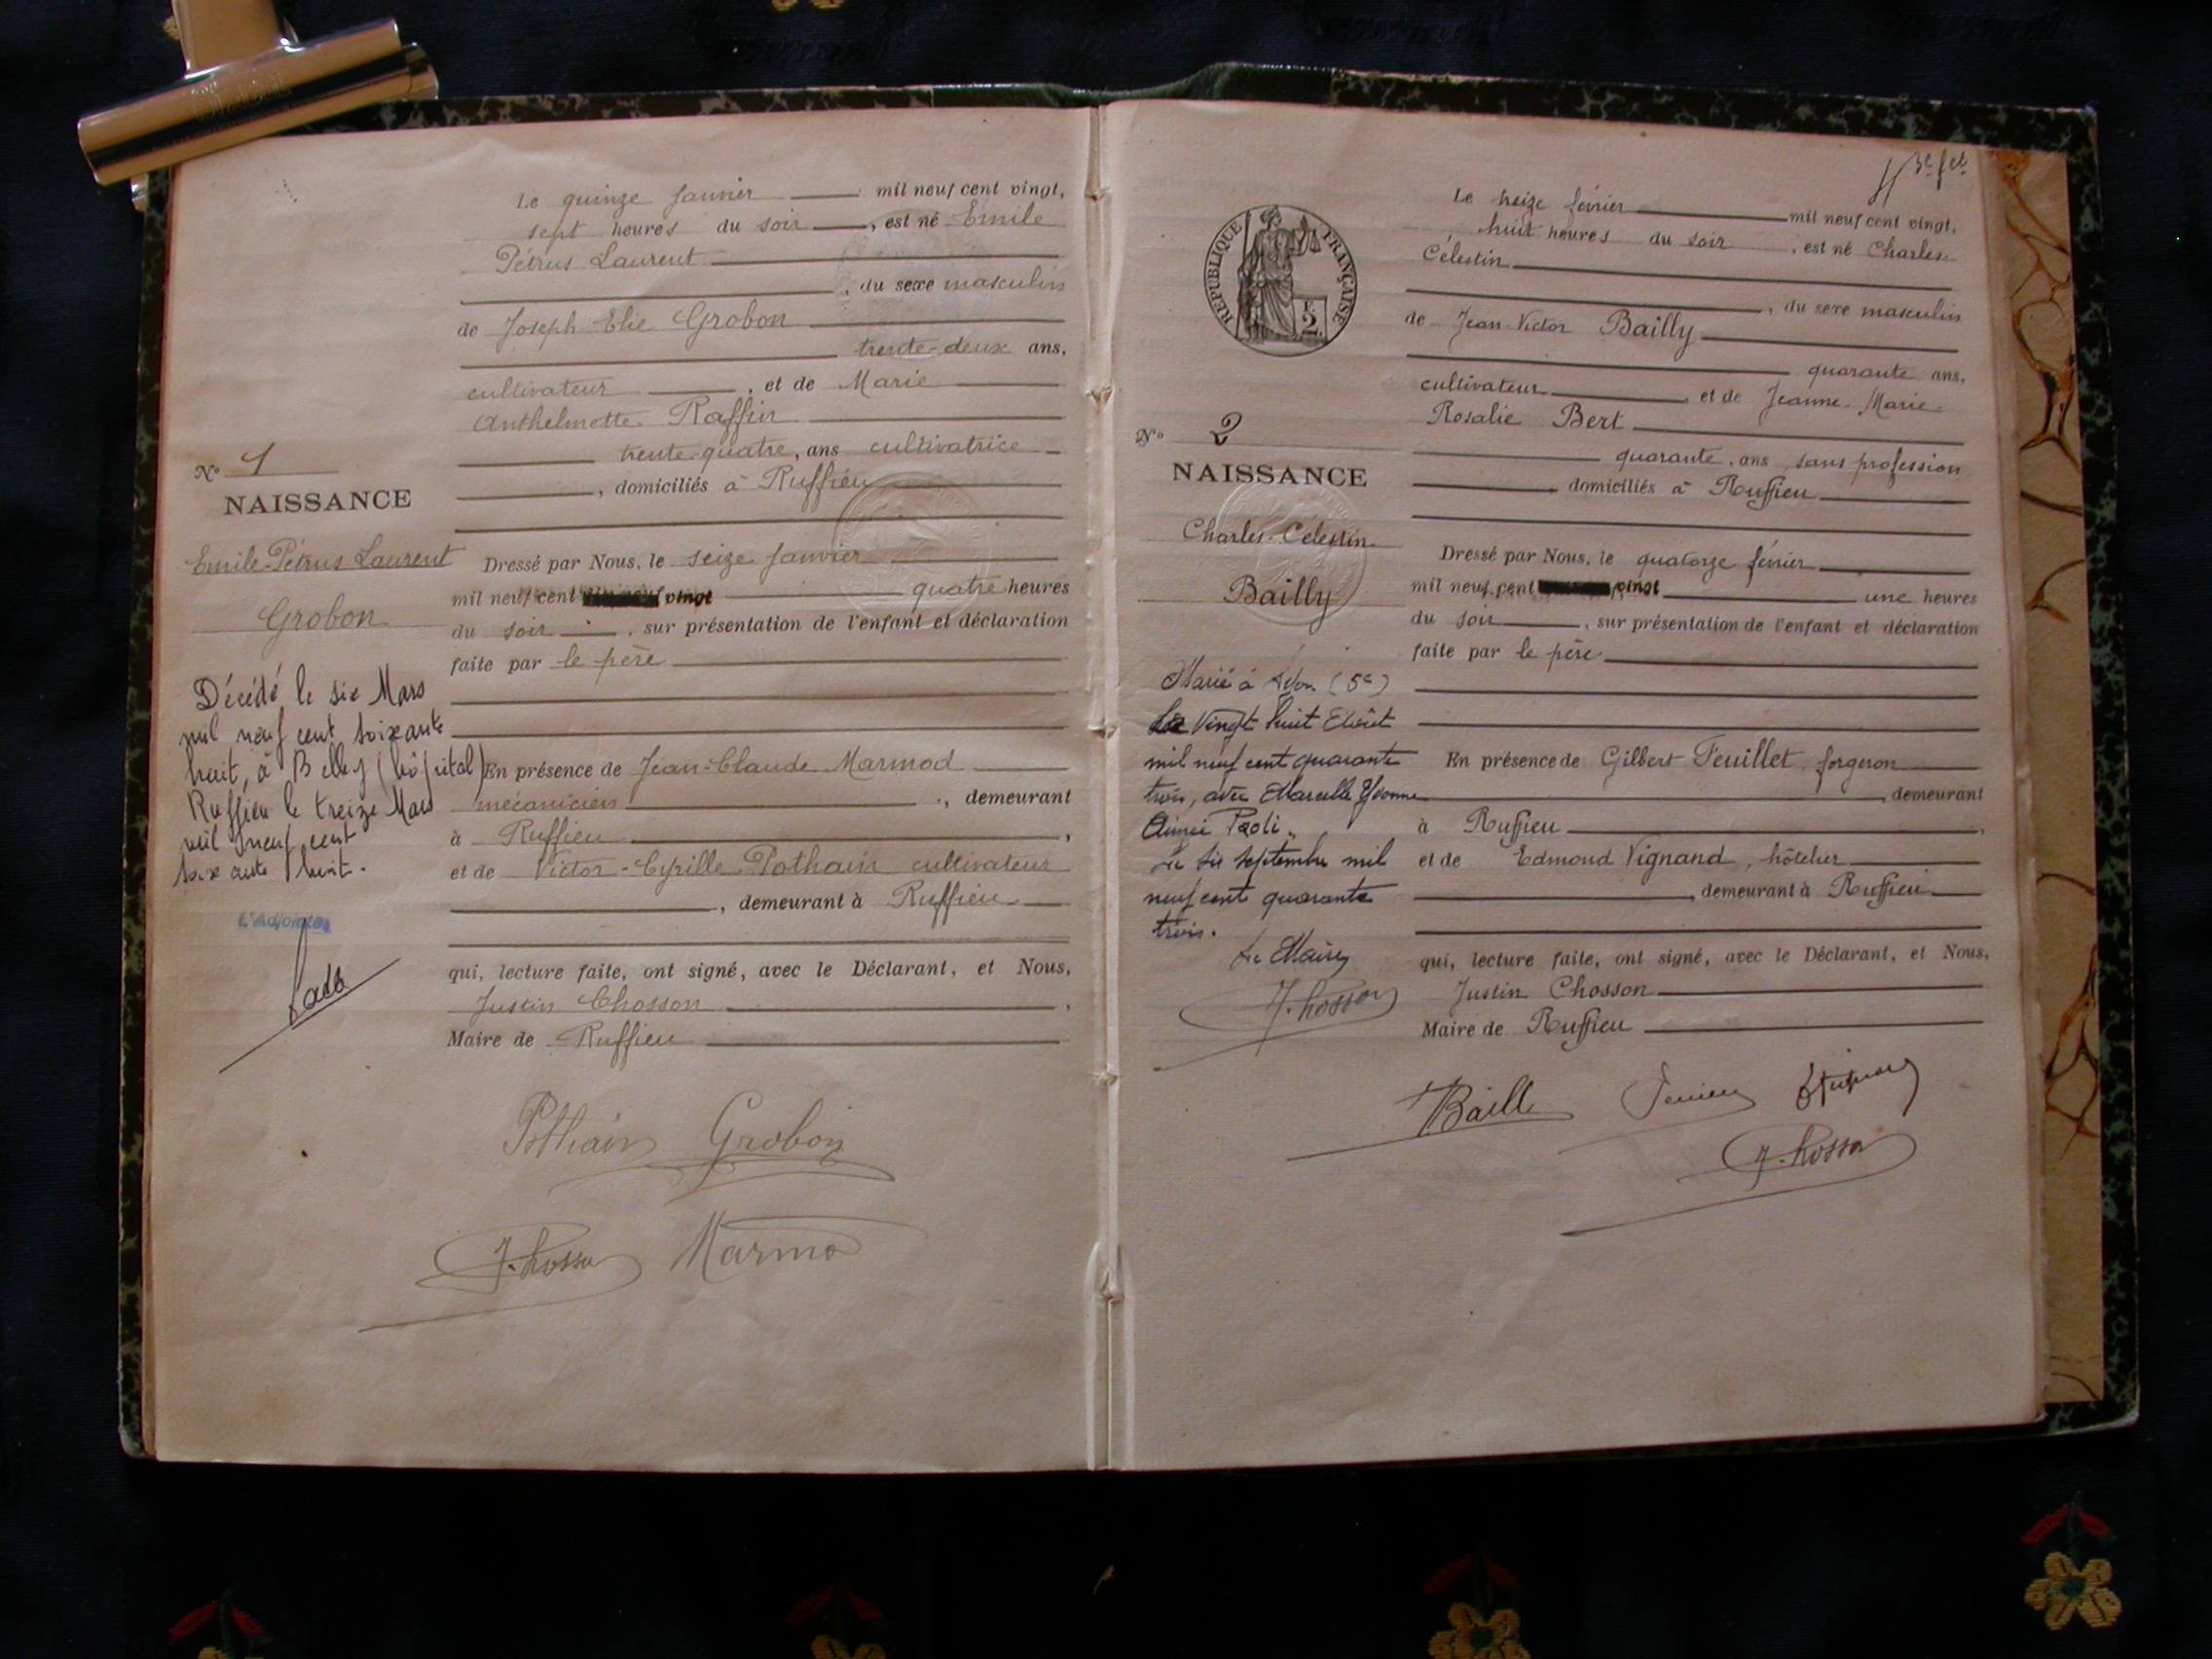 Le quinze Janvier mil neuf cent vingt,
sept heures du soir, est né Emile
Pétrus Laurent
, du sexe masculin
de Joseph Elie Grobon
trente-deux ans,
cultivateur, et de Marie
Anthelmette Raffin
trente-quatre, ans cultivatrice
, domiciliés à Ruffieu
No 1
NAISSANCE
Emile-Pétrus Laurent
Grobon
Dressé par Nous, le seize Janvier
mil neuf cent vingt quatre heures
du soir, sur présentation de l'enfant et déclaration
faite par le père
Décédé le six Mars
mil neuf cent soixante
huit, à Belley (hôpital)
Ruffieu le treize Mars
mil neuf cent
soixante huit.
L'Adjoint
En présence de Jean-Claude Marmod
mécanicien, demeurant
à Ruffieu,
et de Victor-Cyrille Pothain cultivateur
, demeurant à Ruffieu
qui, lecture faite, ont signé, avec le Déclarant, et Nous,
Justin Chosson,
Maire de Ruffieu
Pothain Grobon
J. Chosson Marmod
Le treize février mil neuf cent vingt,
huit heures du soir, est né Charles
Célestin
, du sexe masculin
de Jean-Victor Bailly
quarante ans,
cultivateur, et de Jeanne-Marie
Rosalie Bert
quarante, ans, sans profession
domiciliés à Ruffieu
RÉPUBLIQUE FRANÇAISE
F. 2
No 2
NAISSANCE
Charles-Célestin
Bailly
Dressé par Nous, le quatorze février
mil neuf cent vingt une heures
du soir, sur présentation de l'enfant et déclaration
faite par le père
Marié à Lyon (5e)
Le vingt huit Août
mil neuf cent quarante
trois, avec Marcelle Yvonne
Aimée Paoli.
Le six septembre mil
neuf cent quarante
trois.
Le Maire
J. Chosson
En présence de Gilbert Feuillet, forgeron
, demeurant
à Ruffieu,
et de Edmond Vignand, hôtelier
, demeurant à Ruffieu
qui, lecture faite, ont signé, avec le Déclarant, et Nous,
Justin Chosson
Maire de Ruffieu
Bailly
J. Chosson